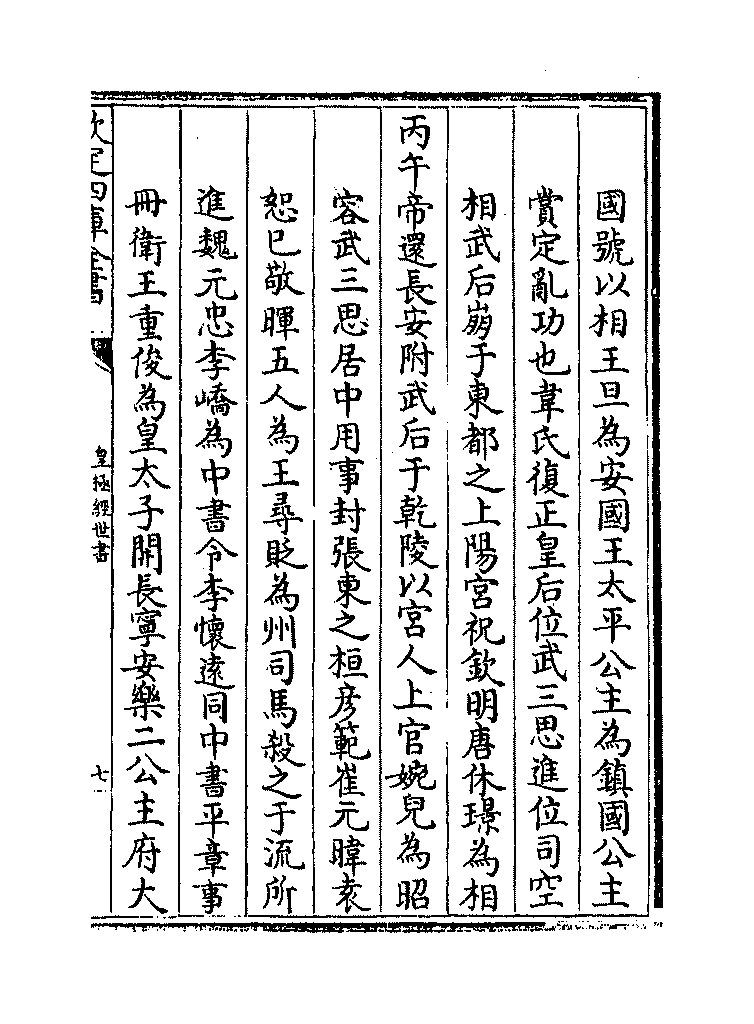 國號以相王旦為安國王太平公主為鎮國公主
賞定亂功也韋氏復正皇后位武三思進位司空
相武后崩于東都之上陽宮祝欽明唐休璟為相
丙午帝還長安附武后于乾陵以宮人上官婉兒為昭
容武三思居中用事封張柬之桓彥範崔元暐袁
恕已敬暉五人為王尋貶為州司馬殺之于流所
進魏元忠李嶠為中書令李懷逺同中書平章事
冊衛王重俊為皇太子開長寧安樂二公主府大
欽定四庫全書
皇極經世書
七